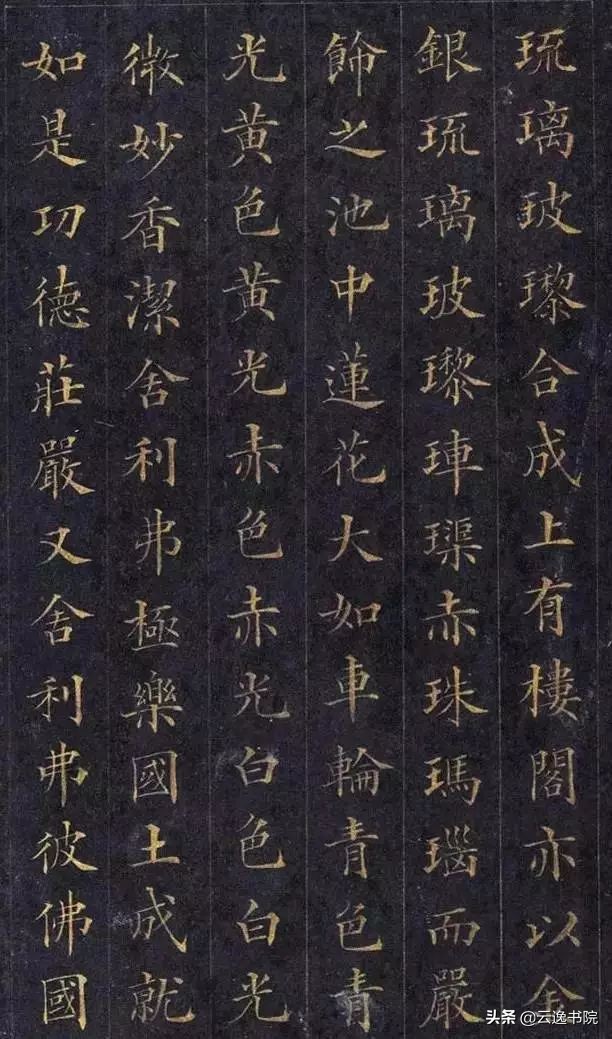 琉璃玻瓈合成上有樓閣亦以金
銀琉璃玻瓈硨磲赤珠瑪瑙而嚴
飾之池中蓮花大如車輪青色青
光黃色黃光赤色赤光白色白光
微妙香潔舍利弗極樂國土成就
如是功德莊嚴又舍利弗彼佛國
头条 @云逸书院